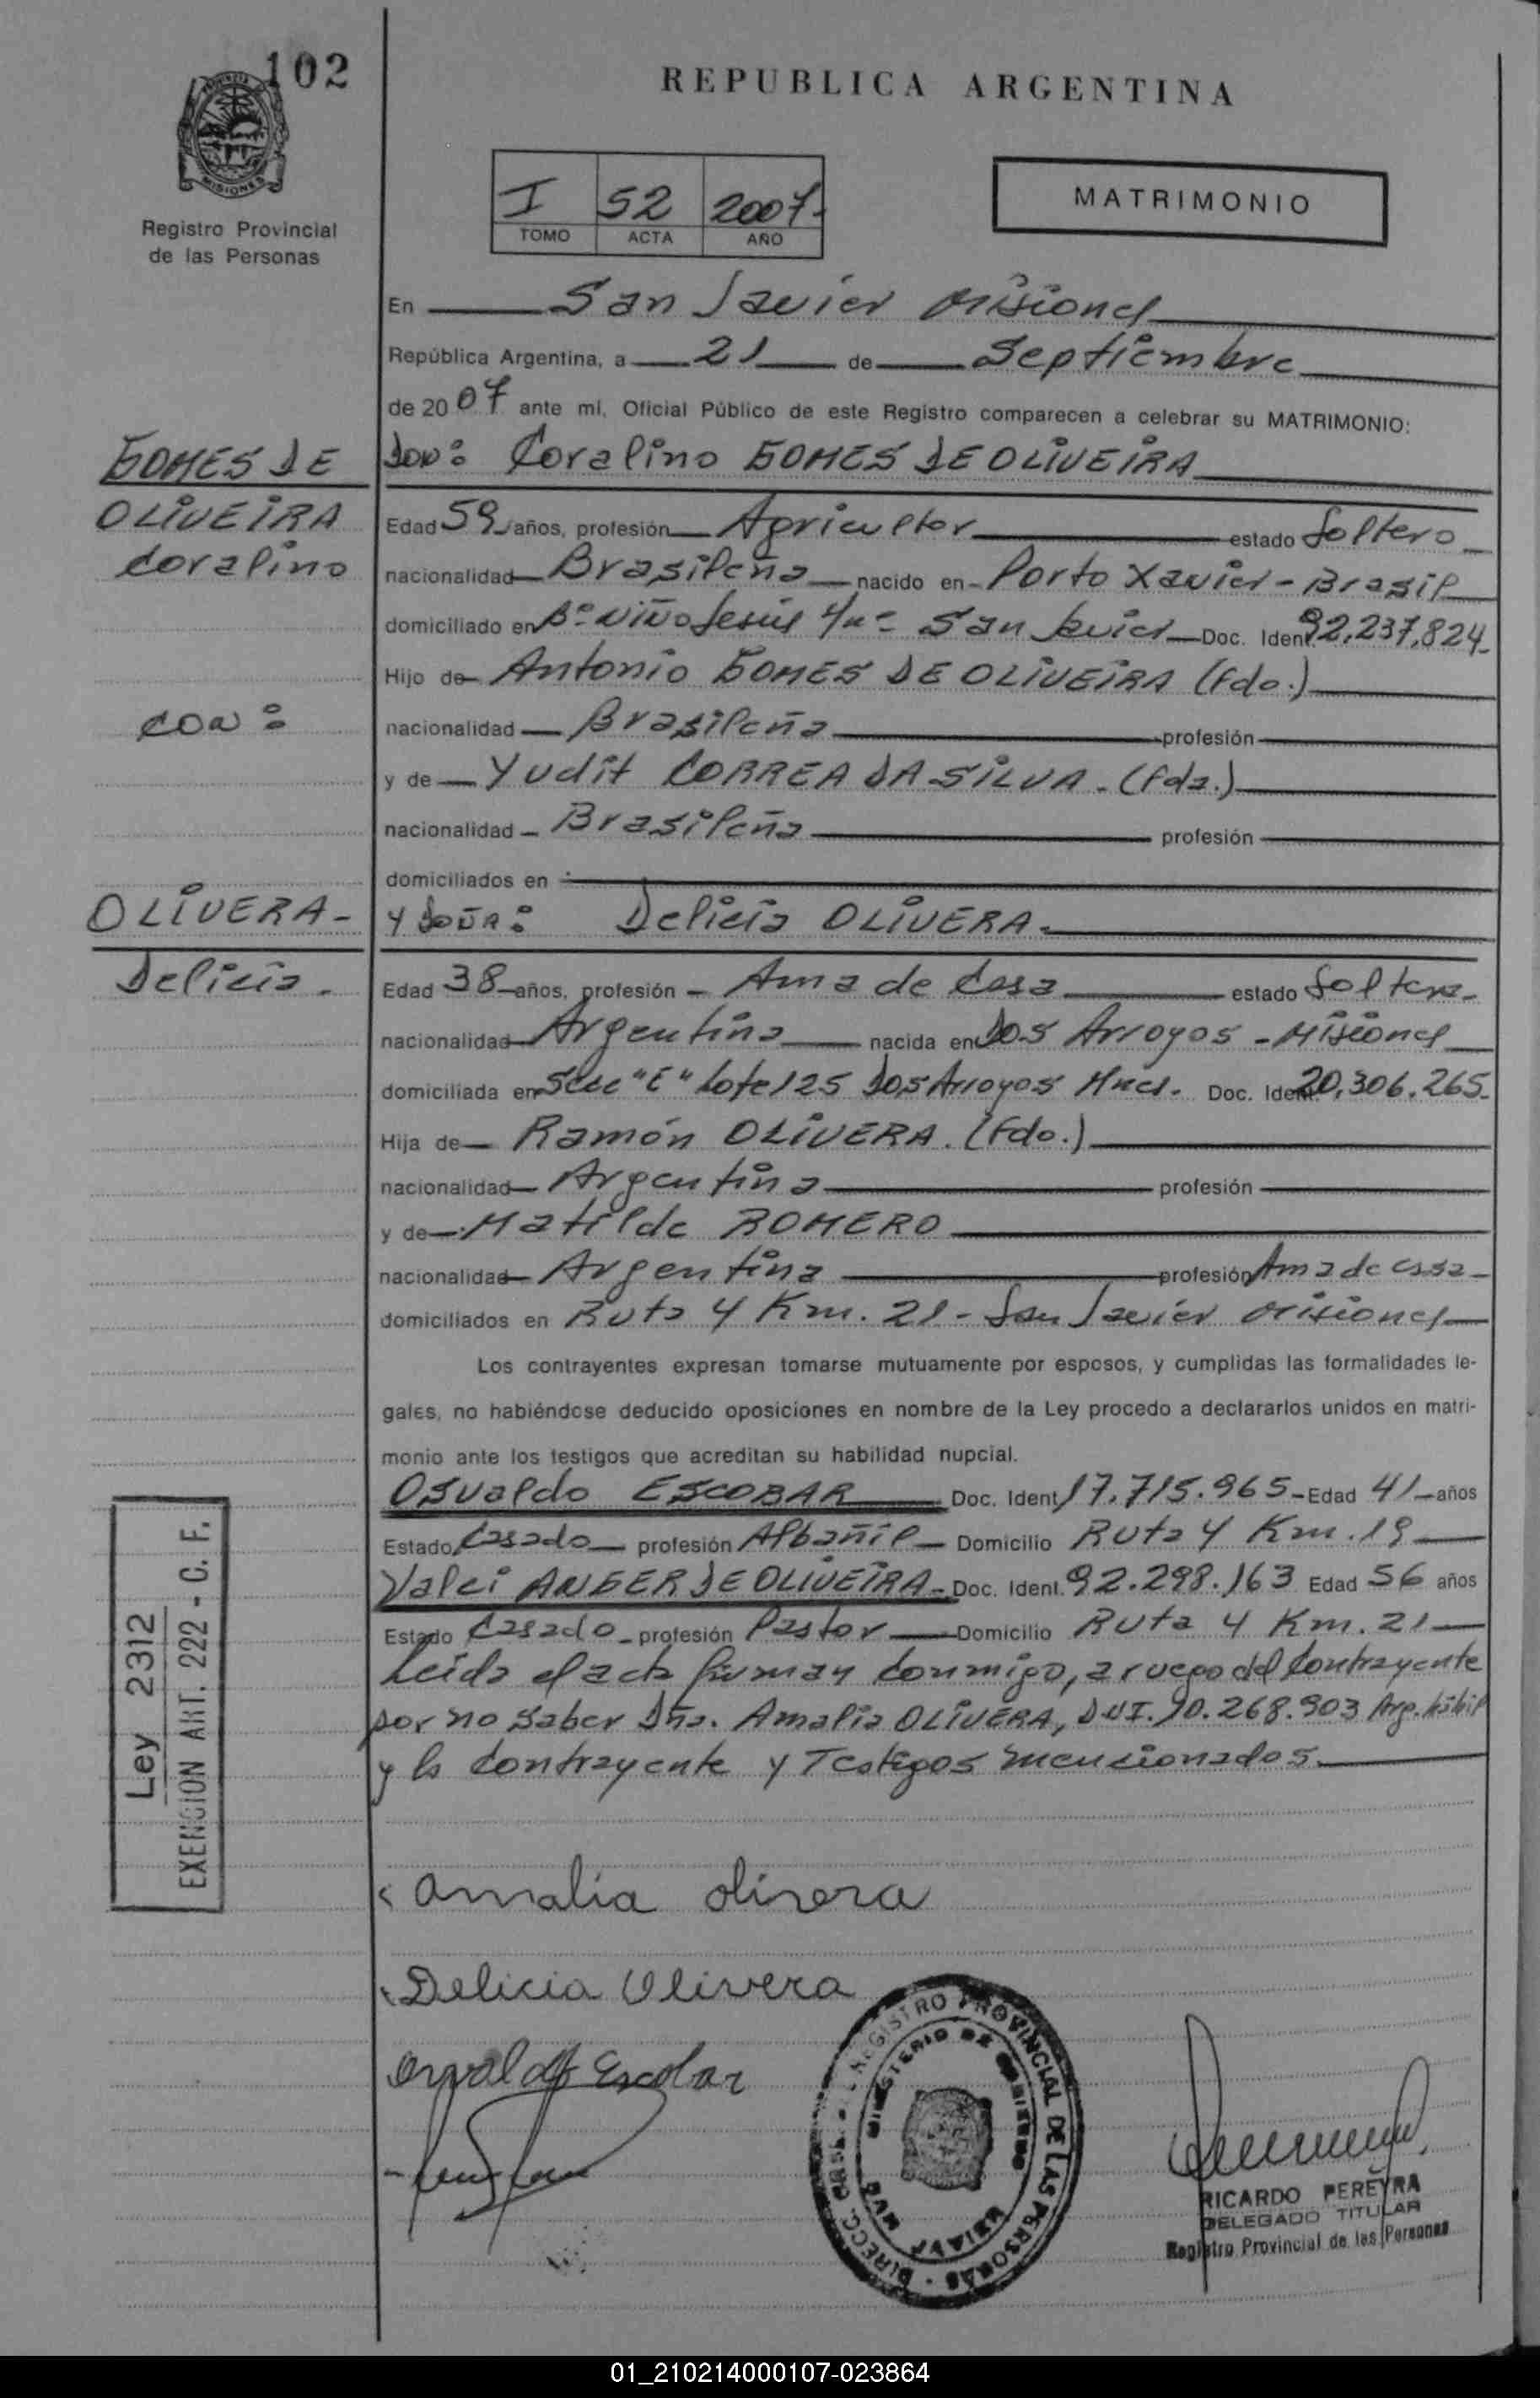 102
REPUBLICA ARGENTINA
MISIONES
Registro Provincial
de las Personas
I 52 2007.
TOMO ACTA AÑO
MATRIMONIO
En San Javier Misiones
República Argentina, a 21 de Septiembre
de 2007 ante mí, Oficial Público de este Registro comparecen a celebrar su MATRIMONIO:
GOMES DE
OLIVEIRA
Coralino
con:
OLIVERA-
Delicia.
Don: Coralino GOMES DE OLIVEIRA
Edad 59 años, profesión Agricultor estado Soltero
nacionalidad Brasileña nacido en Porto Xavier - Brasil
domiciliado en Bº Niño Jesús San Javier Doc. Ident. 92.237.824-
Hijo de Antonio GOMES DE OLIVEIRA (fdo.)
nacionalidad Brasileña profesión
y de Yudit CORREA DA SILVA. (fda.)
nacionalidad Brasileña profesión
domiciliados en
Y DOÑA: Delicia OLIVERA.
Edad 38 años, profesión Ama de Casa estado Soltera-
nacionalidad Argentina nacida en Dos Arroyos - Misiones
domiciliada en Secc "C" Lote 125 Dos Arroyos Mnes. Doc. Ident. 20.306.265-
Hija de Ramón OLIVERA. (fdo.)
nacionalidad Argentina profesión
y de Matilde ROMERO
nacionalidad Argentina profesión Ama de casa
domiciliados en Ruta 4 Km. 21 - San Javier Misiones
Los contrayentes expresan tomarse mutuamente por esposos, y cumplidas las formalidades le-
gales, no habiéndose deducido oposiciones en nombre de la Ley procedo a declararlos unidos en matri-
monio ante los testigos que acreditan su habilidad nupcial.
Osvaldo ESCOBAR Doc. Ident. 17.715.965- Edad 41 años
Estado Casado profesión Albañil Domicilio Ruta 4 Km. 19
Valci ANGER DE OLIVEIRA- Doc. Ident. 92.298.163 Edad 56 años
Estado Casado profesión Pastor Domicilio Ruta 4 Km. 21
Leída el acta firman conmigo, a ruego del Contrayente
por no saber Dña. Amalia OLIVERA, D.U.I. 10.268.903 Arg. hábil
y la Contrayente y Testigos mencionados.
Ley 2312
EXENCION ART. 222 - C. F.
Amalia olivera
Delicia Olivera
Osvaldo Escobar
REGISTRO PROVINCIAL DE LAS PERSONAS
MINISTERIO DE GOBIERNO
SAN JAVIER
RICARDO PEREYRA
DELEGADO TITULAR
Registro Provincial de las Personas
01_210214000107-023864